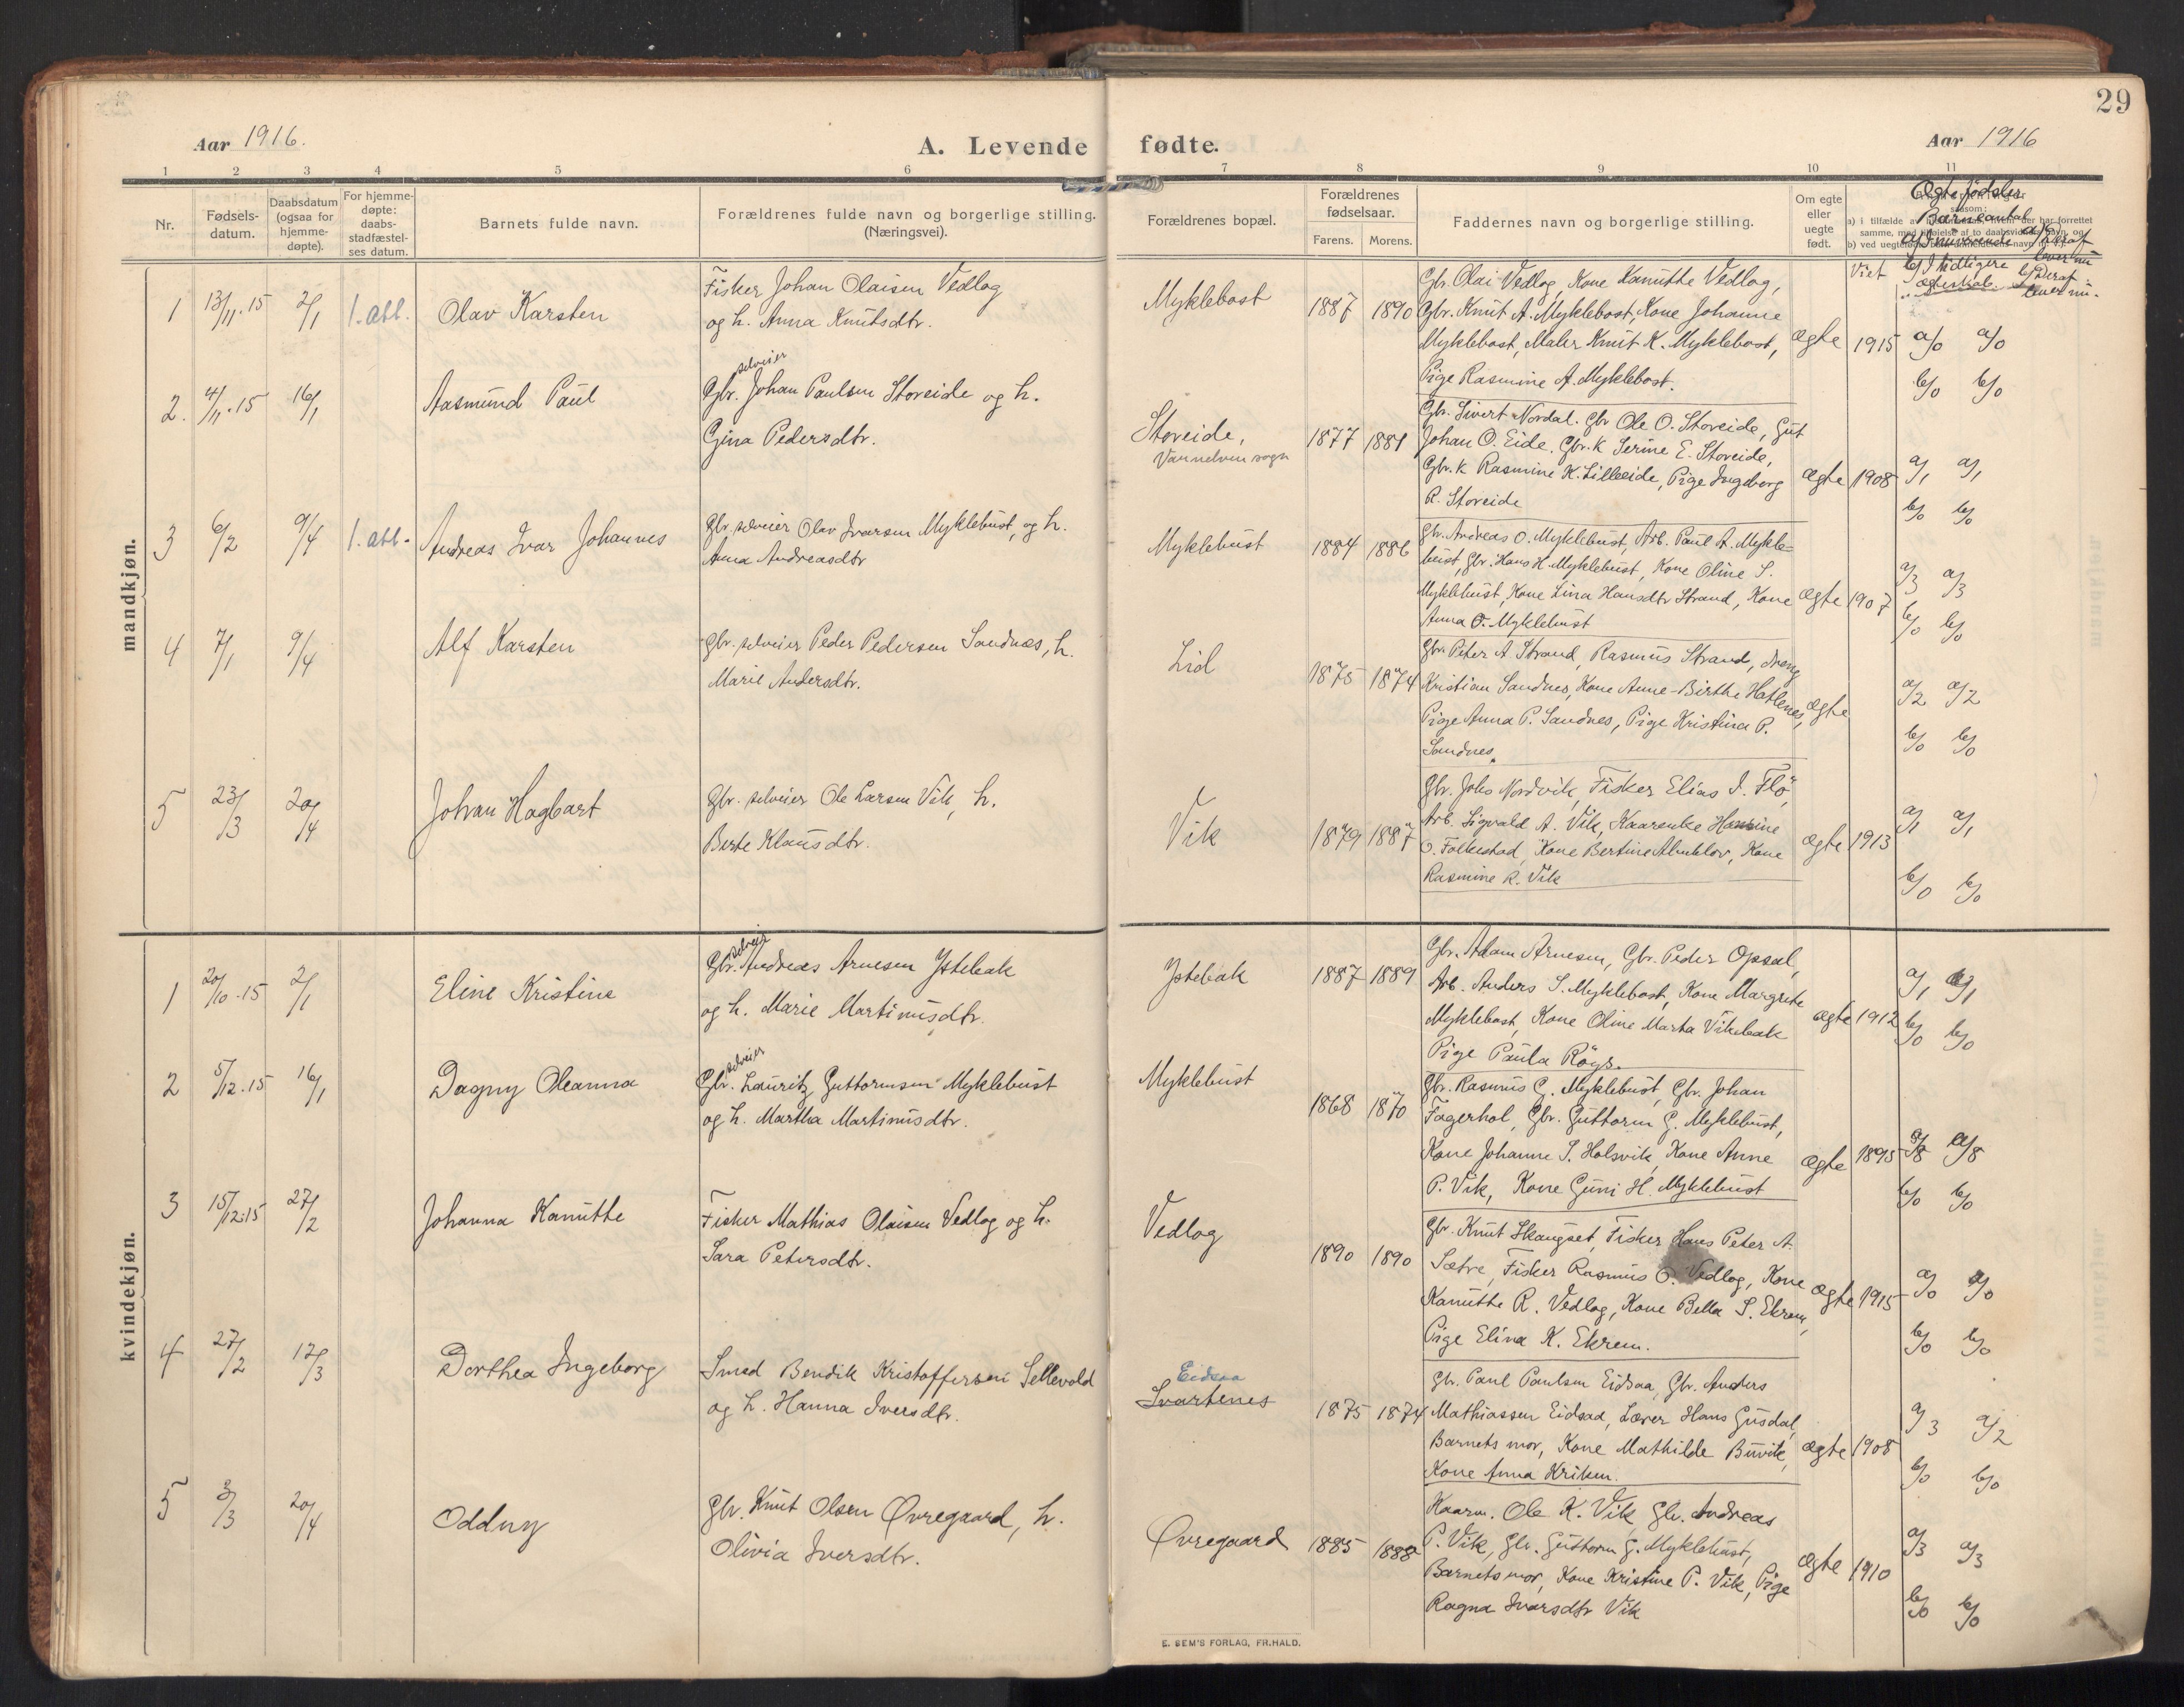 29
Aar 1916.
A. Levende fødte.
Aar 1916
1 2 3 4 5 6 7 8 9 10 11
Nr.
Fødsels-
datum.
Daabsdatum
(ogsaa for
hjemme-
døpte).
For hjemme-
døpte:
daabs-
stadfæstel-
ses datum.
Barnets fulde navn.
Forældrenes fulde navn og borgerlige stilling.
(Næringsvei).
Forældrenes bopæl.
Forældrenes
fødselsaar.
Farens. Morens.
Faddernes navn og borgerlige stilling.
Om egte
eller
uegte
født.
Ægte fødsler
Barneantal
Viet
mandkjøn.
1 13/11.15 2/1 1. abl. Olav Karsten
Fisker Johan Olaisen Vedlog
og h. Anna Knutsdtr.
Myklebost 1887 1890
Gbr. Olai Vedlog, Kone Kanutthe Vedlog,
Gbr. Knut A. Myklebost, Kone Johanne
Myklebost, Maler Knut K. Myklebost,
Pige Rasmine A. Myklebost.
Ægte 1915 a/0 a/0
b/0 b/0
2. 4/11.15 16/1 Aasmund Paul
selveier
Gbr. Johan Paulsen Storeide og h.
Gina Pedersdtr.
Storeide,
Vannelven sogn
1877 1881
Gbr. Sivert Nordal. Gbr Ole O. Storeide, Gut
Johan O. Eide. Gbr. K Serine E. Storeide,
Gbr. K Rasmine K. Lilleeide, Pige Ingeborg
R. Storeide
Ægte 1908 a/1 a/1
b/0 b/0
3 6/2 9/4 1. abl. Andreas Ivar Johannes
Gbr. selveier Olav Ivarsen Myklebust, og h.
Anna Andreasdtr
Myklebust 1884 1886
Gbr. Andreas O. Myklebust, Arb. Paul A. Mykle-
bust, Gbr. Hans H. Myklebust, Kone Oline S.
Myklebust, Kone Lina Hansdtr Strand, Kone
Anna O. Myklebust
Ægte 1907 a/3 a/3
b/0 b/0
4 7/1 9/4 Alf Karsten
Gbr. selveier Peder Pedersen Sandnæs, h.
Marie Andersdtr.
Lid 1875 1874
Gbr. Peter A Strand, Rasmus Strand, dreng
Kristian Sandnes, Kone Anne-Birthe Hatlenes,
Pige Anna P. Sandnes, Pige Kristina P.
Sandnes.
Ægte a/2 a/2
b/0 b/0
5 23/3 20/4 Johan Hagbart
Gbr. selveier Ole Larsen Vik, h.
Berte Klausdtr.
Vik 1879 1887
Gbr. Johs Nordvik, Fisker Elias I. Flö,
Arb. Sigvald A. Vik, Kaarenke Hansine
O. Folkestad, Kone Bertine Almklov, Kone
Rasmine R. Vik
Ægte 1913 a/1 a/1
b/0 b/0
kvindekjøn.
1 20/10.15 2/1 Eline Kristine
selveier
Gbr. Andreas Arnesen Ystebak
og h. Marie Martinusdtr.
Ystebak 1887 1889
Gbr. Adam Arnesen, Gbr. Peder Opsal,
Arb. Anders S. Myklebost, Kone Margrete
Myklebost, Kone Oline Marta Vikebak
Pige Paula Röys.
Ægte 1912 a/1 a/1
b/0 b/0
2 5/12.15 16/1 Dagny Oleanna
selveier
Gbr. Lauritz Guttormsen Myklebust
og h. Martha Martinusdtr.
Myklebust
1868 1870
Gbr. Rasmus G. Myklebust, Gbr. Johan
Fagerhol, Gbr. Guttorm G. Myklebust,
Kone Johanne S. Holsvik, Kone Anne
P. Vik, Kone Guni H. Myklebust
Ægte 1895 a/8 a/8
b/0 b/0
3 15/12.15 27/2 Johanna Kanutthe
Fisker Mathias Olaisen Vedlog og h.
Sara Petersdtr.
Vedlog
1890 1890
Gbr. Knut Skaugset, Fisker Hans Peter A.
Sætre, Fisker Rasmus O. Vedlog, Kone
Kanutthe R. Vedlog, Kone Bella S. Ekrem,
Pige Elina K. Ekrem.
Ægte 1915 a/0 a/0
b/0 b/0
4 27/2 12/3 Dorthea Ingeborg
Smed Bendik Kristoffersen Sellevold
og h. Hanna Iversdtr.
Eidsaa
Svartenes
1875 1874
Gbr. Paul Paulsen Eidsaa, Gbr. Anders
Mathiassen Eidsaa, Lærer Hans Gusdal,
Barnets mor, Kone Mathilde Buvik,
Kone Anna Kriken.
Ægte 1908 a/3 a/2
b/0 b/0
5 3/3 20/4 Oddny
Gbr. Knut Olsen Øvregaard, h.
Olivia Iversdtr.
Øvregaard 1885 1888
Kaarm. Ole K. Vik, Gbr. Andreas
P. Vik, Gbr. Guttorm G. Myklebust,
Barnets mor, Kone Kristine P. Vik, Pige
Ragna Ivarsdtr Vik
Ægte 1910 a/3 a/3
b/0 b/0
E. SEM'S FORLAG, FR.HALD.